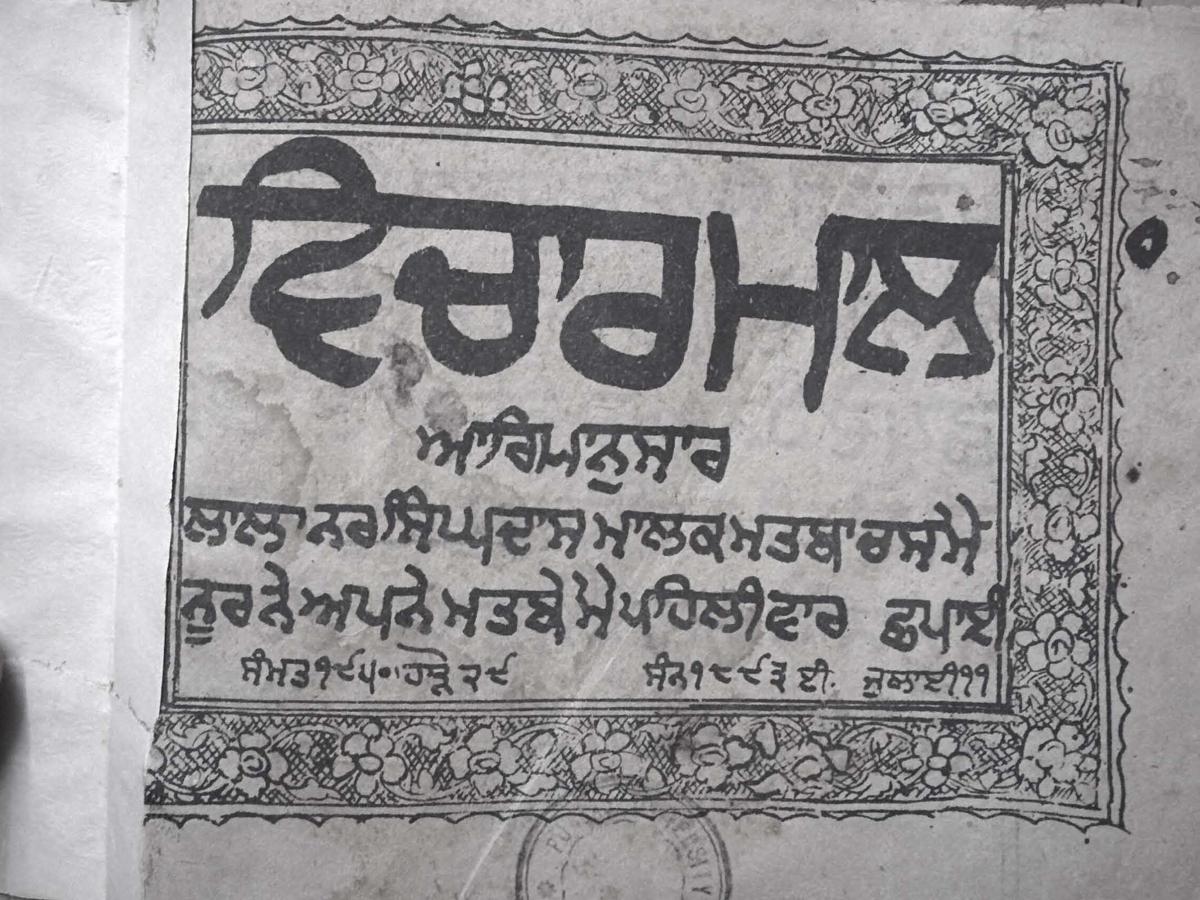 ਵਿਚਾਰਮਾਲ
ਆਗਿਆਨੁਸਾਰ
ਲਾਲਾ ਨਰਸਿੰਘਦਾਸ ਮਾਲਕ ਮਤਬਾ ਚਸਮੇ
ਨੂਰ ਨੇ ਅਪਨੇ ਮਤਬੇ ਮੇਂ ਪਹਿਲੀਵਾਰ ਛਪਾਈ
ਸੰਮਤ ੧੯੫੦ ਹਾੜੋ ੨੯ ਸੰਨ ੧੮੯੩ ਈ. ਜੁਲਾਈ ੧੧